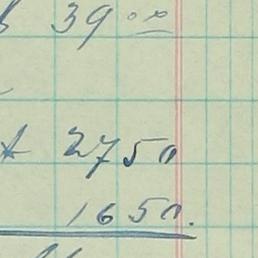 39 00
2750
1650.